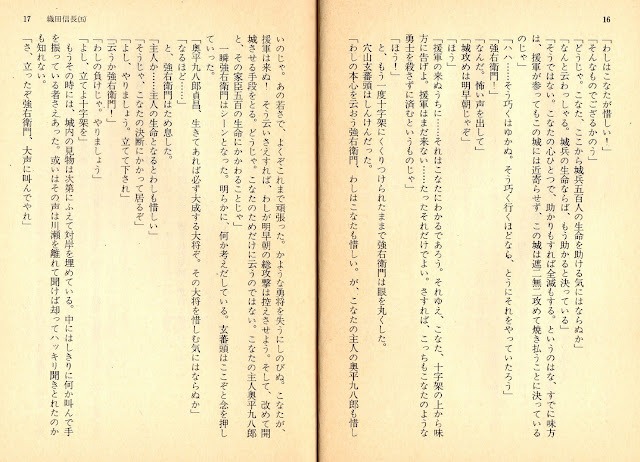 16
「わしはこなたが惜しい！」
「そんなものでござるかのう」
「どうじゃ、こなた、ここから城兵五百人の生命を助ける気にはならぬか」
「なんと云わっしゃる。城兵の生命ならば、もう助かると決っている」
「そうではない。こなたの心ひとつで、助かりもすれば全滅もする。というのはな、すでに味方
は、援軍が参ってもこの城には近寄らせず、この城は遮二無二攻めて焼き払うことに決っている
のじゃ」
「ハハ……そう巧くはゆかぬ。そう巧く行くほどなら、とうにそれをやっていたろう」
「強右衛門！」
「なんだ。怖い声を出して」
「城攻めは明早朝じゃぞ」
「ほう」
「援軍の来ぬうちに……それはこなたにわかるであろう。それゆえ、こなた、十字架の上から味
方に告げよ。援軍はまだ来ない……たったそれだけでよい。さすれば、こっちもこなたのような
勇士を殺さずに済むというものじゃ」
「ほう！」
と、もう一度十字架にくくりつけられたままで強右衛門は眼を丸くした。
穴山玄蕃頭はしんけんだった。
「わしの本心を云おう強右衛門。わしはこなたも惜しい。が、こなたの主人の奥平九八郎も惜し
17　織田信長(五)
いのじゃ。あの若さで、よくぞこれまで頑張った。かような勇将を失うにしのびぬ。こなたが、
援軍は来ぬ！　そう云いさえすれば、わしが明早朝の総攻撃は控えさせよう。そして、改めて開
城させる手段をとる。どうじゃ。こなたのためだけに云うのではない。こなたの主人の奥平九八郎
と、その家臣五百の生命にかかわることじゃ」
一瞬強右衛門はシーンとなった。明らかに、何か考えだしている。玄蕃頭はここぞと念を押し
ていった。
「奥平九八郎貞昌、生きてあれば必ず大成する大将ぞ。その大将を惜しむ気にはならぬか」
「なるほど……」
と、強右衛門はため息した。
「主人か……主人の生命となるとわしも惜しい」
「そうじゃ、こなたの決断にかかって居るぞ」
「よし、やりましょう。立てて下され」
「云うか強右衛門！」
「わしの負けじゃ。やりましょう」
「よし、立てよ十字架を」
もうその時には、城内の見物は次第にふえて対岸を埋めている。中にはしきりに何か叫んで手
を振っている者さえあった。或いはその声は川瀬を離れて聞けば却ってハッキリ聞きとれたのか
も知れない。
「さ、立ったぞ強右衛門、大声に叫んでやれ」